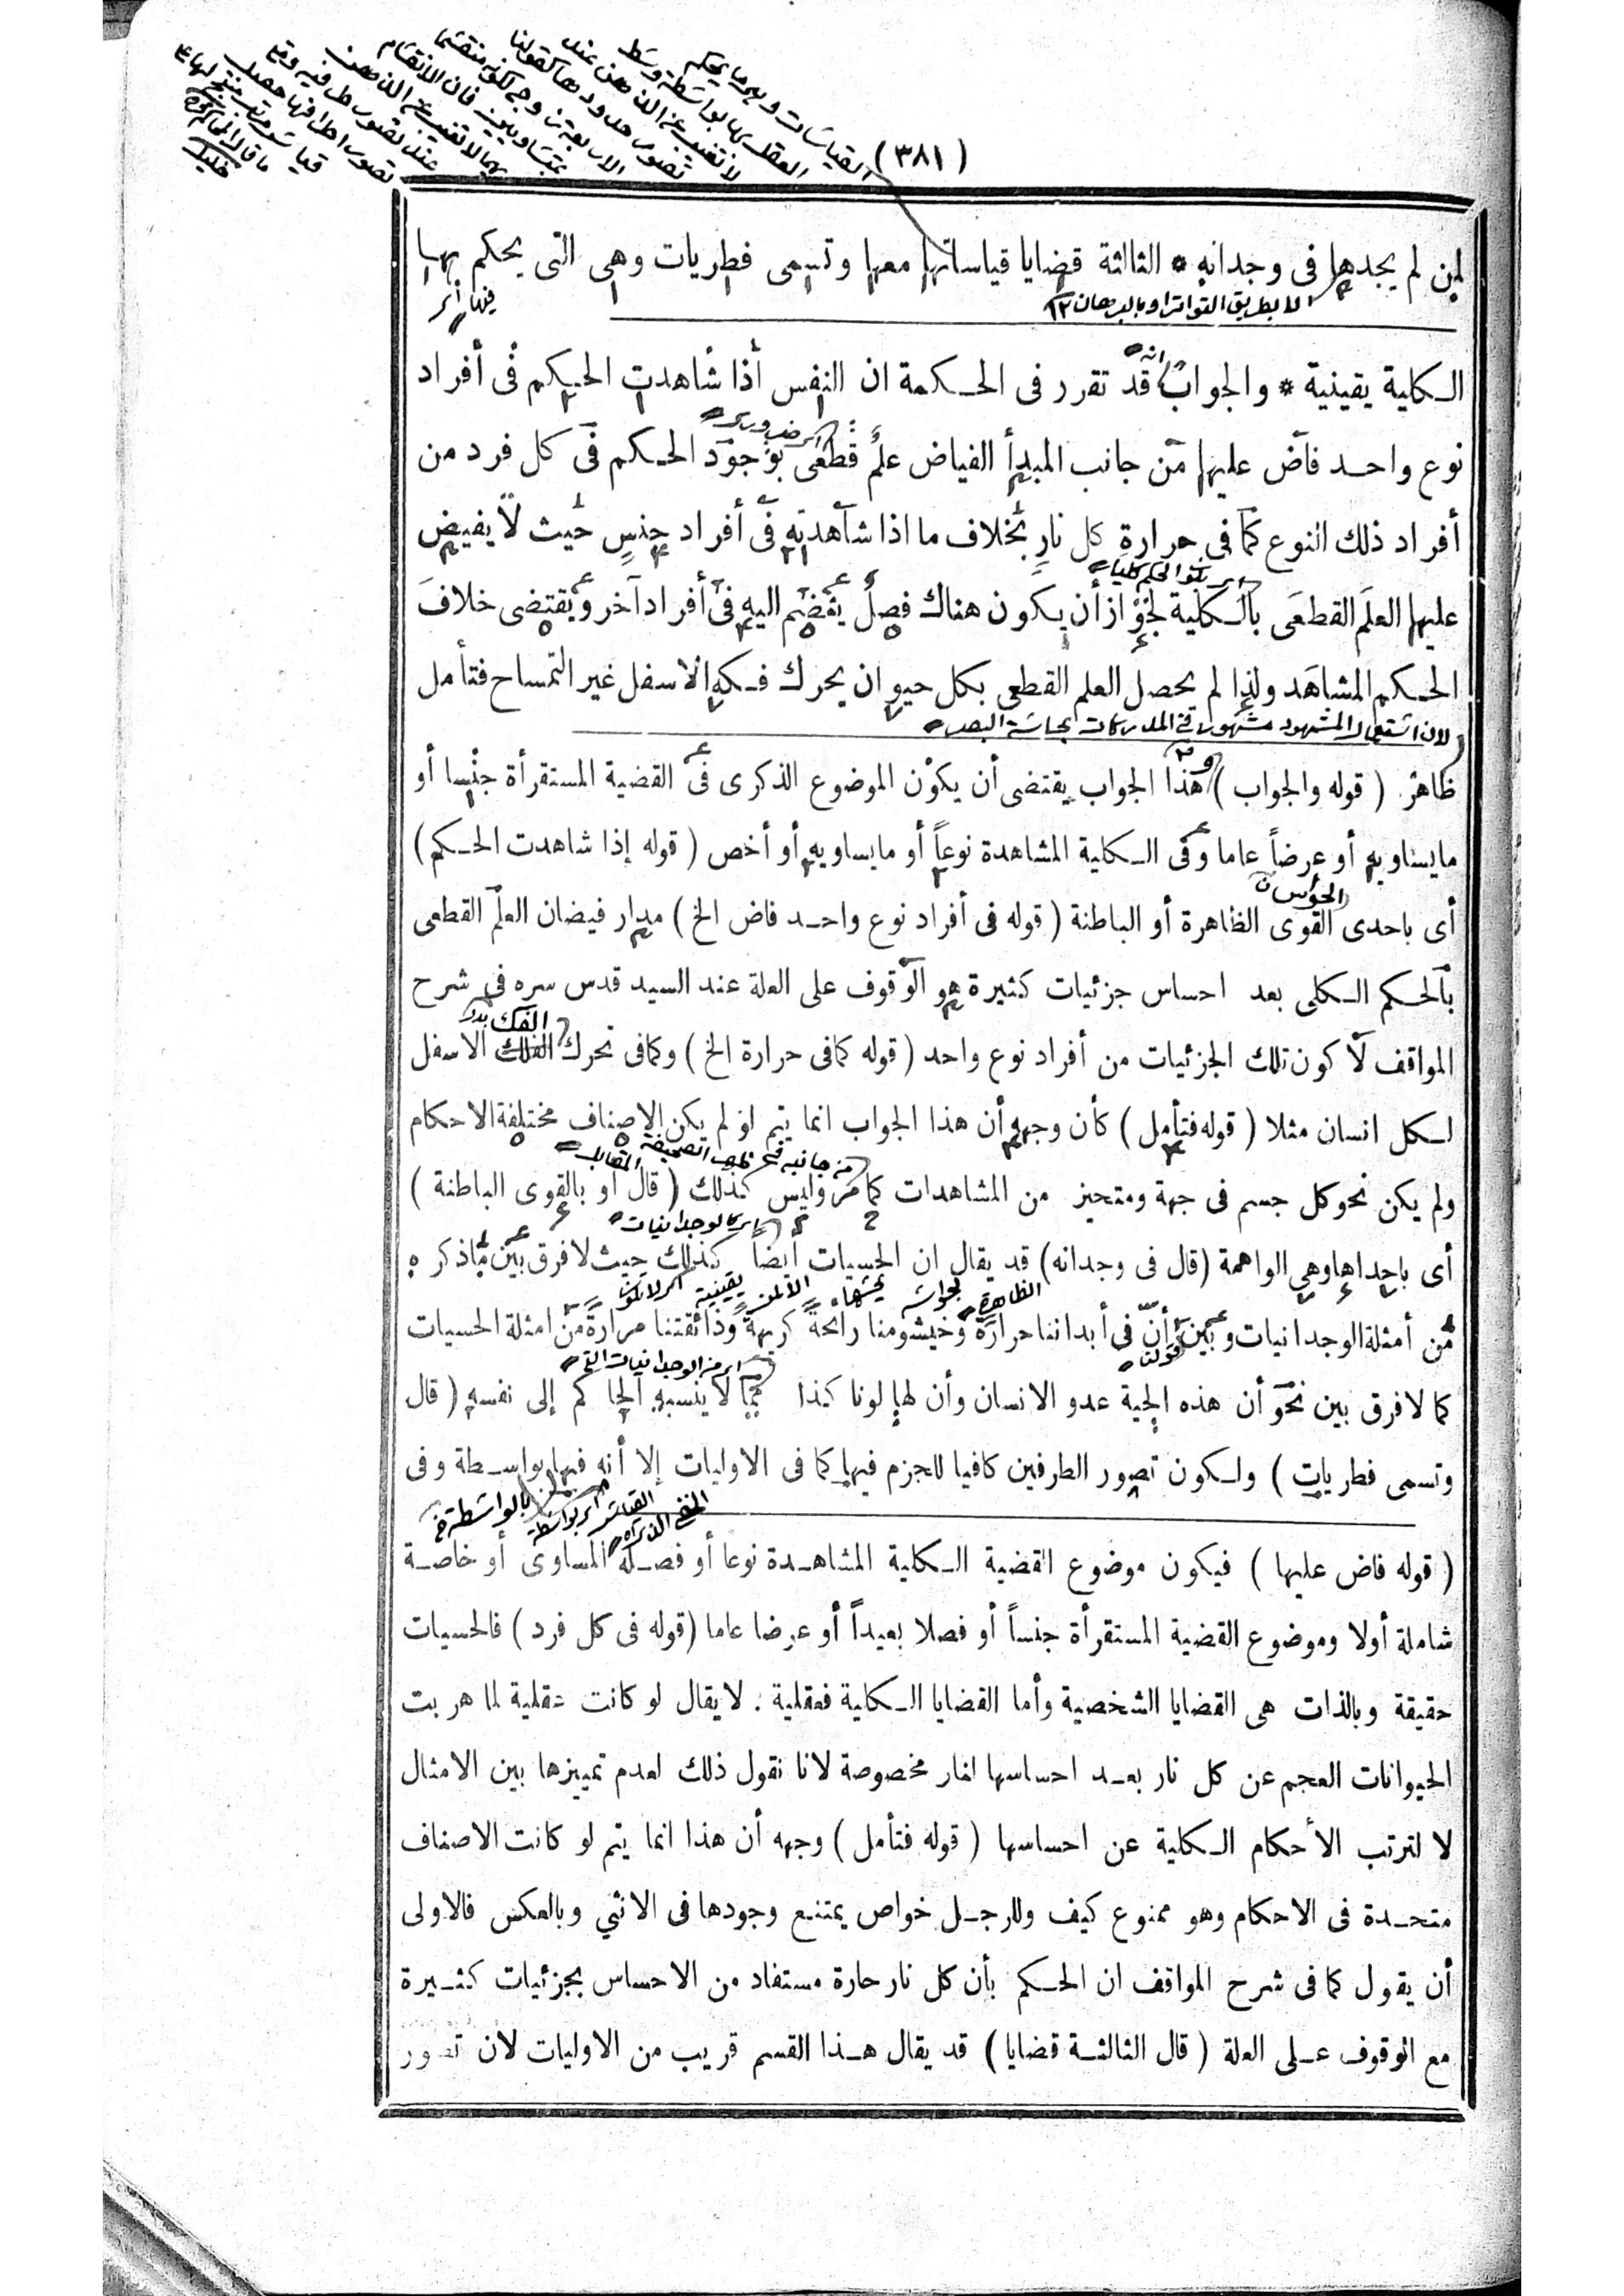 (٣٨١)
لمن لم يجدها فى وجدانه * الثالثة قضايا قياساتها معها وتسمى فطريات وهى التى يحكم بها
الا بطريق التواتر او بالبرهان ١٢
الكلية يقينية * والجواب انه قد تقرر فى الحكمة ان النفس أذا شاهدت الحكم فى أفراد
نوع واحد فاض عليها من جانب المبدأ الفياض علم قطعى بوجود الحكم فى كل فرد من
أفراد ذلك النوع كما فى حرارة كل نار بخلاف ما اذا شاهدته فى أفراد جنس حيث لا يفيض
عليها العلم القطعى بالكلية لجواز أن يكون هناك فصل ينضم اليه فى أفراد آخر ويقتضى خلاف
الحكم المشاهد ولذا لم يحصل العلم القطعى بكل حيوان يحرك فكه الاسفل غير التمساح فتأمل
ظاهر ( قوله والجواب ) هذا الجواب يقتضى أن يكون الموضوع الذكرى فى القضية المستقرأة جنسا أو
مايساويه أو عرضاً عاما وفى الكلية المشاهدة نوعاً أو مايساويه أو أخص ( قوله إذا شاهدت الحكم )
الحواس
أى باحدى القوى الظاهرة أو الباطنة ( قوله فى أفراد نوع واحد فاض الخ ) مدار فيضان العلم القطعى
بالحكم الكلى بعد احساس جزئيات كثيرة هو الوقوف على العلة عند السيد قدس سره فى شرح
الفك
المواقف لا كون تلك الجزئيات من أفراد نوع واحد ( قوله كمافى حرارة الخ ) وكمافى تحرك الفلك الاسفل
لكل انسان مثلا ( قوله فتأمل ) كأن وجهه أن هذا الجواب انما يتم لو لم يكن الاصناف مختلفة الاحكام
ولم يكن نحو كل جسم فى جهة ومتحيز من المشاهدات كما مر وليس كذلك ( قال او بالقوى الباطنة )
اى كالوجدانيات
أى باحداها وهى الواهمة ( قال فى وجدانه ) قد يقال ان الحسيات أيضاً كذلك حيث لافرق بين ماذكره
من أمثلة الوجدانيات وبين أن فى أبداننا حرارة وخيشومنا رائحة كريهة وذائقتنا مرارة من امثلة الحسيات
كما لافرق بين نحو أن هذه الحية عدو الانسان وأن لها لونا كذا مما لا ينسبه الحاكم إلى نفسه ( قال
وتسمى فطريات ) ولكون تصور الطرفين كافيا للجزم فيها كما فى الاوليات إلا أنه فيها بواسطة وفى
( قوله فاض عليها ) فيكون موضوع القضية الكلية المشاهدة نوعا أو فصله المساوى أو خاصة
شاملة أولا وموضوع القضية المستقرأة جنساً أو فصلا بعيداً أو عرضا عاما ( قوله فى كل فرد ) فالحسيات
حقيقة وبالذات هى القضايا الشخصية وأما القضايا الكلية فعقلية . لا يقال لو كانت عقلية لما هربت
الحيوانات العجم عن كل نار بعد احساسها لنار مخصوصة لانا نقول ذلك لعدم تمييزها بين الامثال
لا لترتب الأحكام الكلية عن احساسها ( قوله فتأمل ) وجهه أن هذا انما يتم لو كانت الاصناف
متحدة فى الاحكام وهو ممنوع كيف وللرجل خواص يمتنع وجودها فى الانثي وبالعكس فالاولى
أن يقول كما فى شرح المواقف ان الحكم بأن كل نار حارة مستفاد من الاحساس بجزئيات كثيرة
مع الوقوف على العلة ( قال الثالثة قضايا ) قد يقال هذا القسم قريب من الاوليات لان تصور